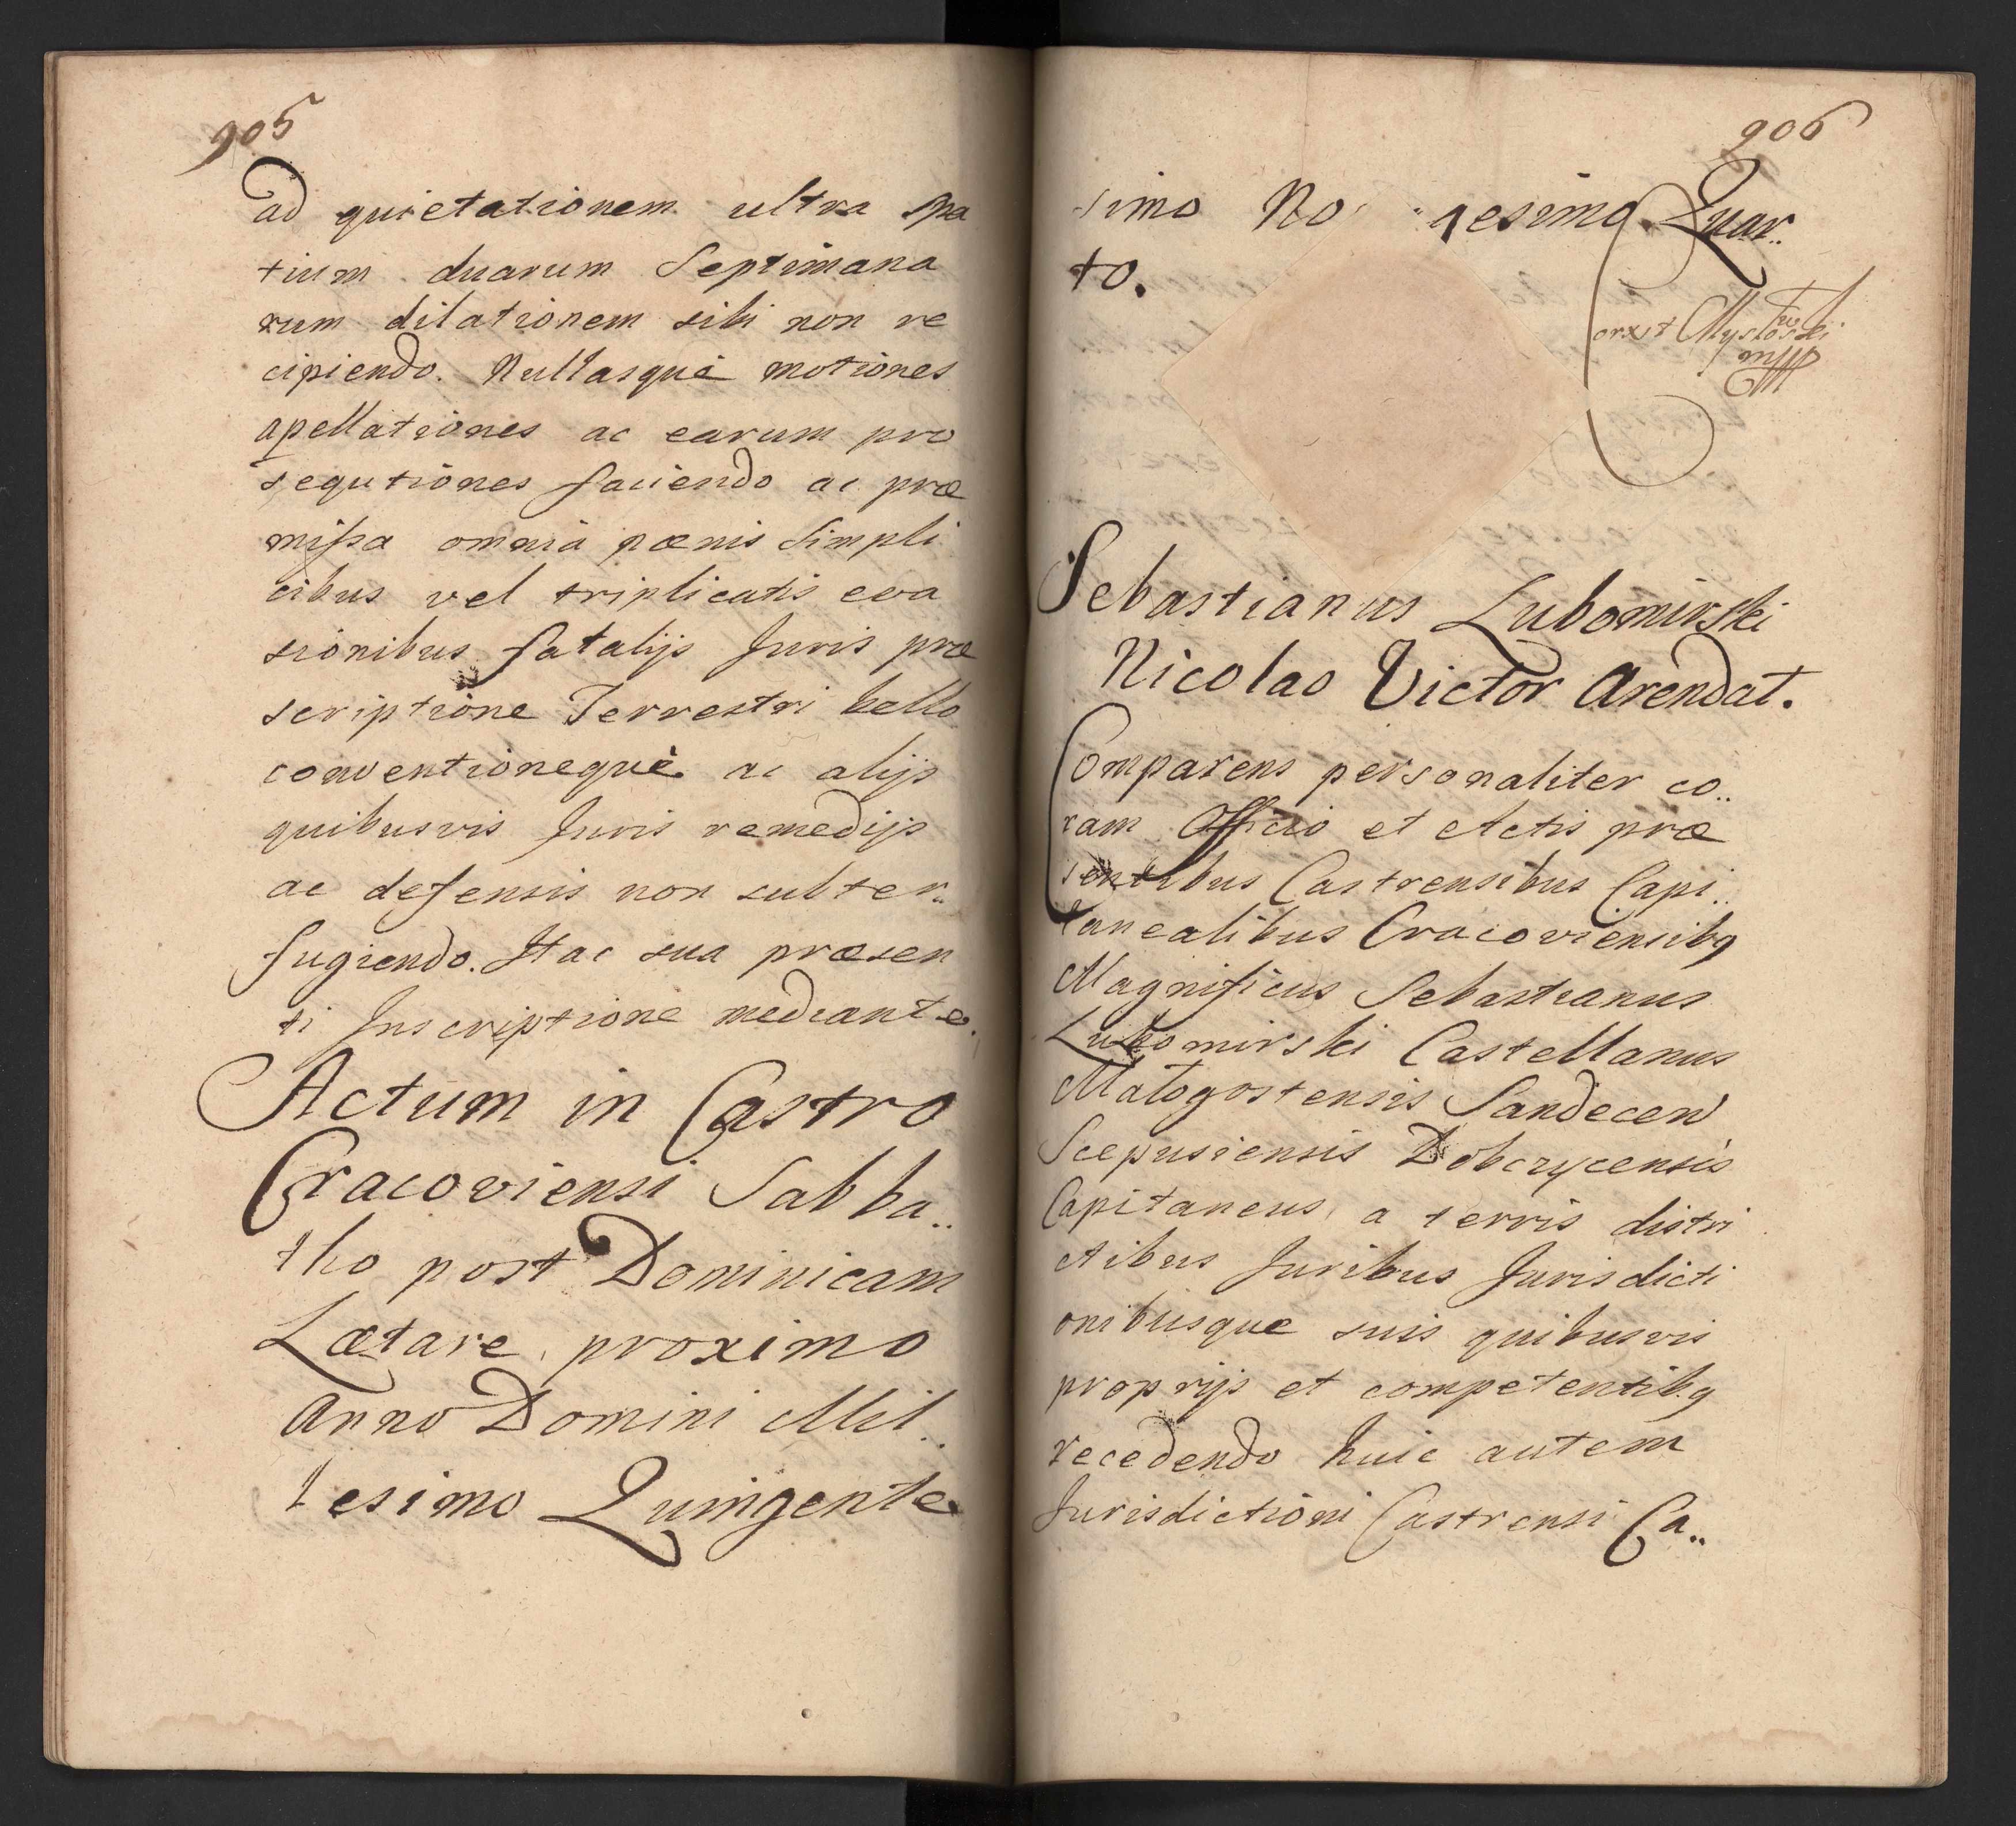 905
ad quietationem ultra spa
tium duarum Septimana
rum dilationem sibi non re
cipiendo. Nullasque motiones
apellationes ac earum pro
sequtiones faciendo ac præ
missa omnia pœnis simpli
cibus vel triplicatis eva
sionibus fatalijs Juris præ
scriptione Terrestri bello
conventioneque ac alijs
quibusvis Juris remedijs
ac defensis non subter..
fugiendo. Hac sua præsen
ti Inscriptione mediante.
Actum in Castro
Cracoviensi Sabba..
tho post Dominicam
Lætare proximo
Anno Domini Mil..
lesimo Quingente
906
simo No gesimo Quar..
to.
Sebastianus Lubomirski
Nicolao Victor Arendat.
Comparens personaliter co..
ram Officio et Actis præ
sentibus Castrensibus Capi..
tanealibus Cracoviensibq
Magnificus Sebastianus
Lubomirski Castellanus
Małogostensis Sandecen
Scepusiensis Dobczycensis
Capitaneus a terris distri
ctibus Juribus Jurisdicti
onibusque suis quibusvis
proprijs et competentibq
recedendo huic autem
Jurisdictioni Castrensi Ca..